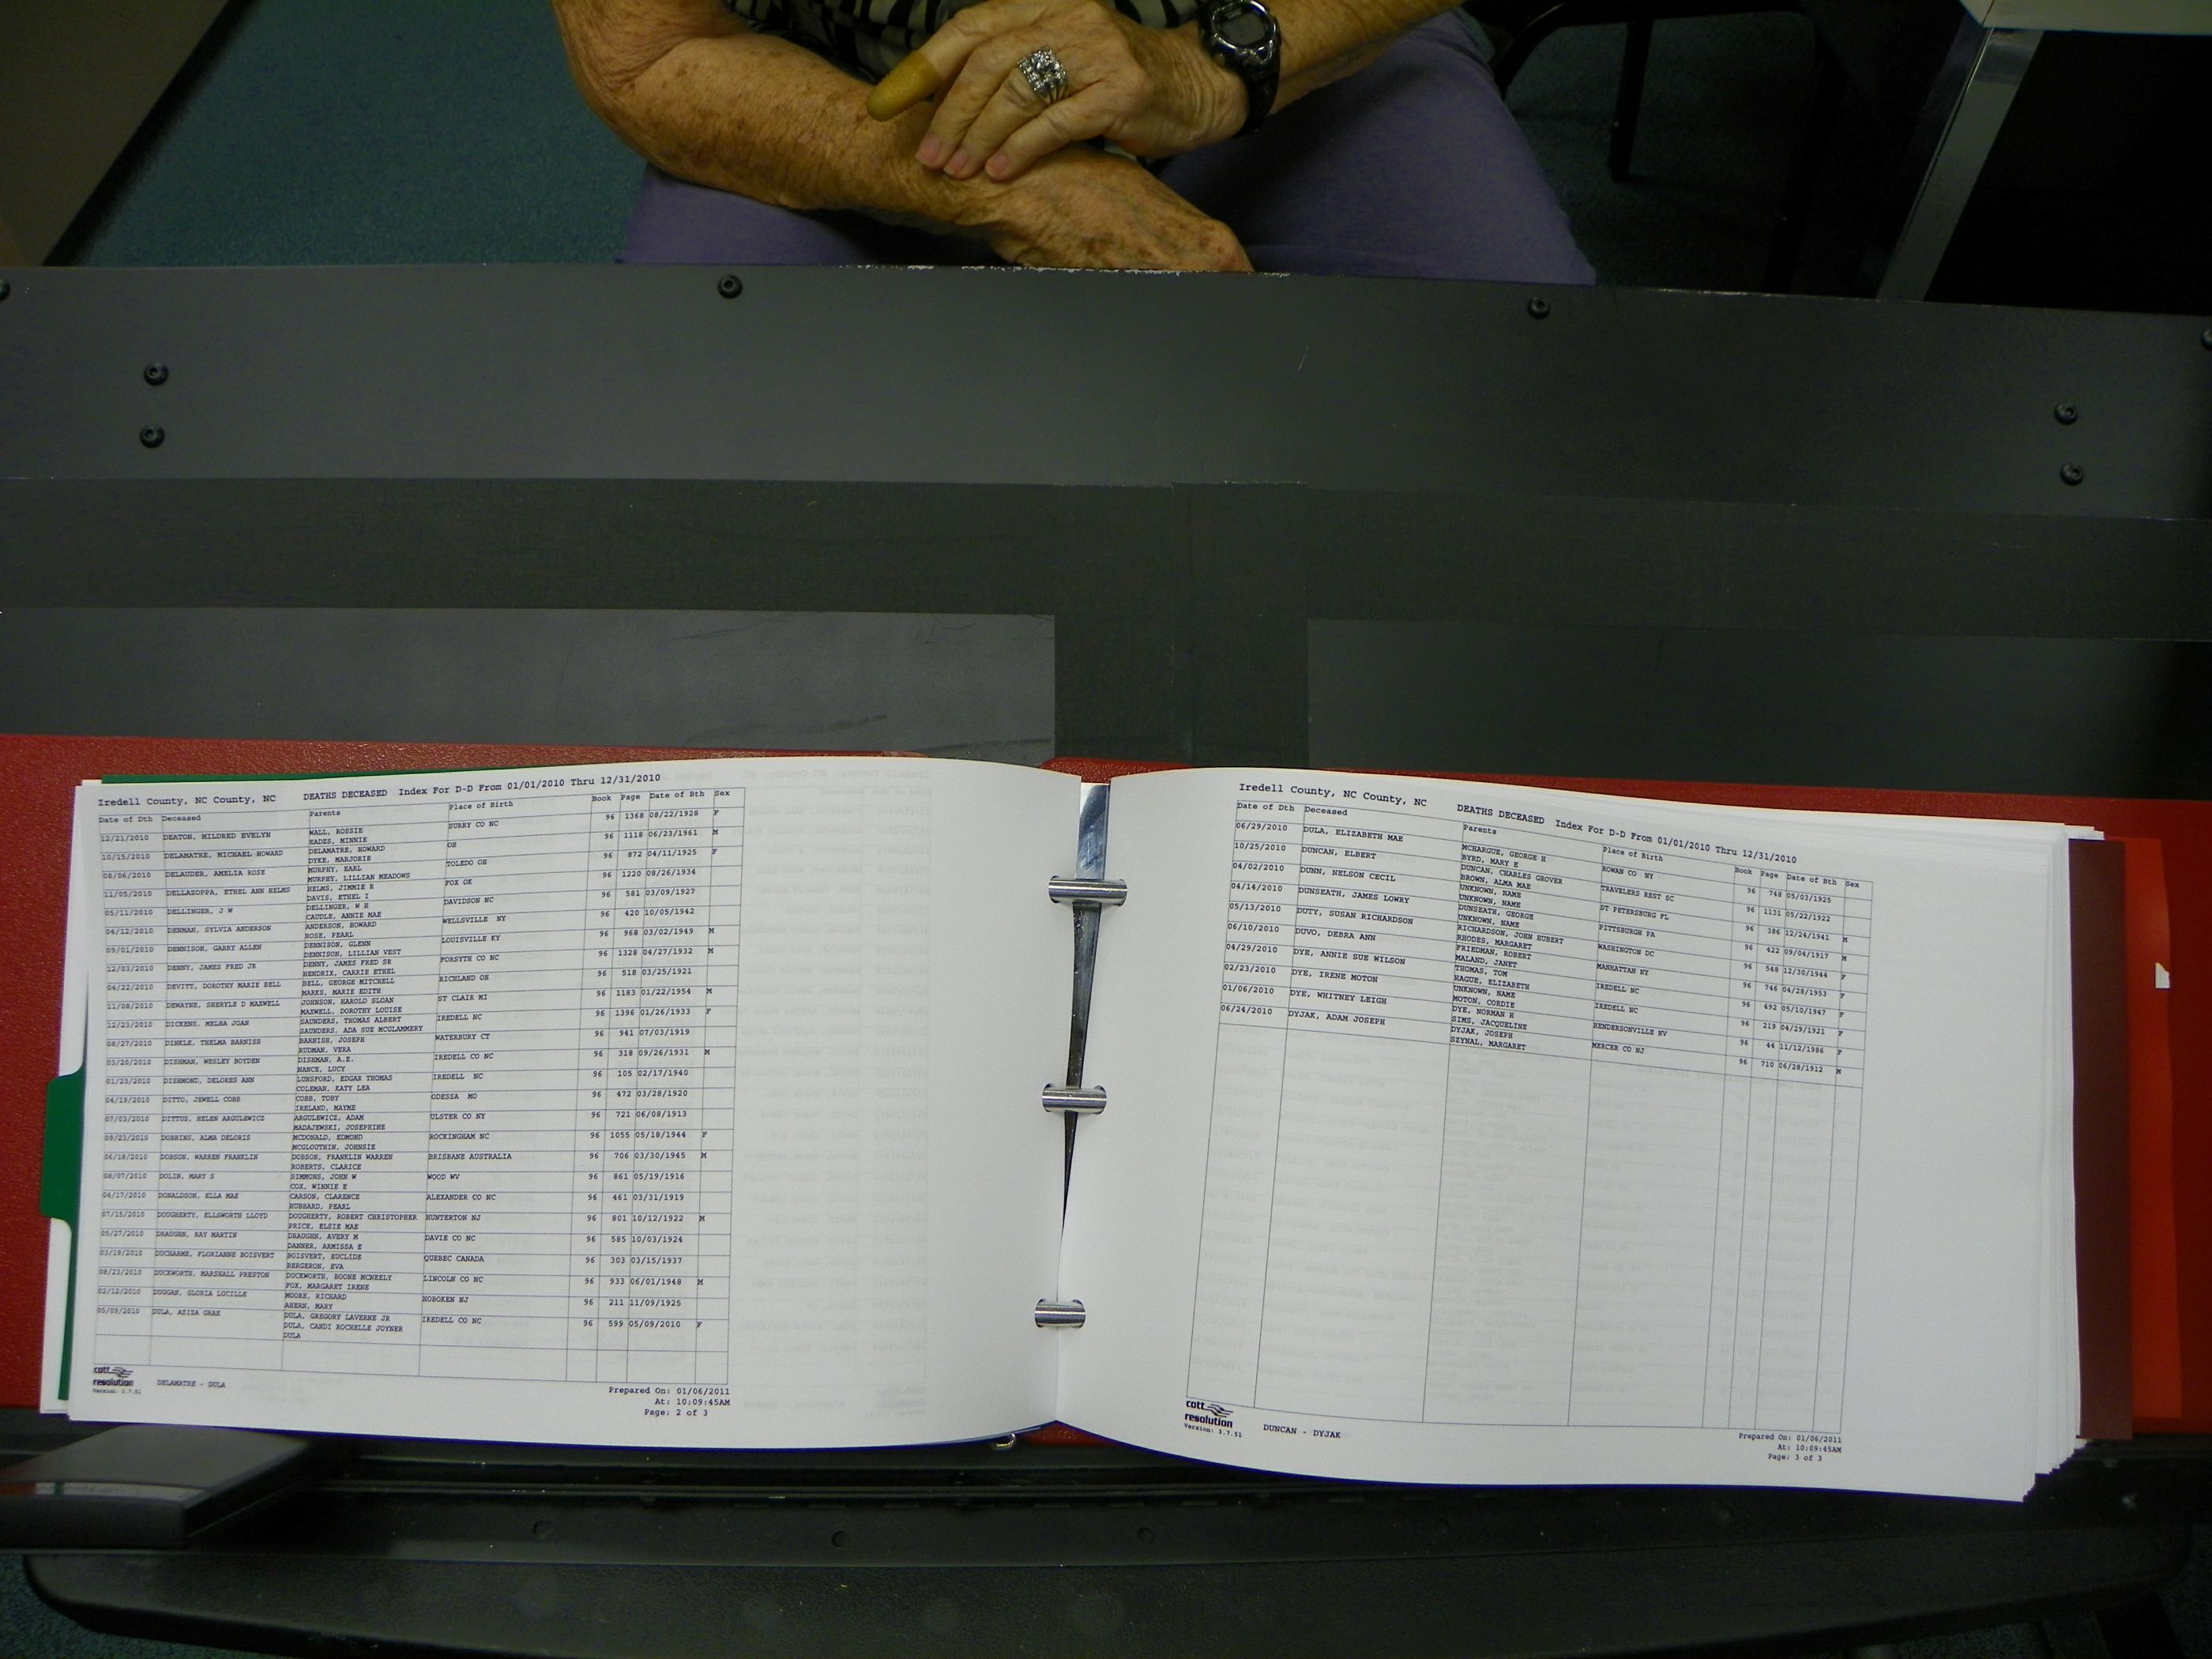 Iredell County, NC County, NC DEATHS DECEASED Index For D-D From 01/01/2010 Thru 12/31/2010
Date of Dth Deceased Parents Place of Birth Book Page Date of Bth Sex
12/21/2010 DEATON, MILDRED EVELYN WALL, ROSSIE SURRY CO NC 96 1368 08/22/1928 F
EADES, MINNIE
10/15/2010 DELAMATRE, MICHAEL HOWARD DELAMATRE, HOWARD OH 96 1118 06/23/1961 M
DYKE, MARJORIE
08/06/2010 DELAUDER, AMELIA ROSE MURPHY, EARL TOLEDO OH 96 872 04/11/1925 F
MURPHY, LILLIAN MEADOWS
11/05/2010 DELLAZOPPA, ETHEL ANN HELMS HELMS, JIMMIE R FOX OK 96 1220 08/26/1934
DAVIS, ETHEL I
05/11/2010 DELLINGER, J W DELLINGER, W H DAVIDSON NC 96 581 03/09/1927
CAUDLE, ANNIE MAE
04/12/2010 DENMAN, SYLVIA ANDERSON ANDERSON, HOWARD WELLSVILLE NY 96 420 10/05/1942
ROSE, PEARL
09/01/2010 DENNISON, GARRY ALLEN DENNISON, GLENN LOUISVILLE KY 96 968 03/02/1949 M
DENNISON, LILLIAN VEST
12/03/2010 DENNY, JAMES FRED JR DENNY, JAMES FRED SR FORSYTH CO NC 96 1328 04/27/1932 M
HENDRIX, CARRIE ETHEL
04/22/2010 DEVITT, DOROTHY MARIE BELL BELL, GEORGE MITCHELL RICHLAND OH 96 518 03/25/1921
MARKS, MARIE EDITH
11/08/2010 DEWAYNE, SHERYLE D MAXWELL JOHNSON, HAROLD SLOAN ST CLAIR MI 96 1183 01/22/1954 M
MAXWELL, DOROTHY LOUISE
12/23/2010 DICKENS, MELBA JOAN SAUNDERS, THOMAS ALBERT IREDELL NC 96 1396 01/26/1933 F
SAUNDERS, ADA SUE MCGLAMMERY
08/27/2010 DINKLE, THELMA BARNISH BARNISH, JOSEPH WATERBURY CT 96 941 07/03/1919
RUDMAN, VERA
03/20/2010 DISHMAN, WESLEY BOYDEN DISHMAN, A.E. IREDELL CO NC 96 318 09/26/1931 M
NANCE, LUCY
01/23/2010 DISHMOND, DELORES ANN LUNSFORD, EDGAR THOMAS IREDELL NC 96 105 02/17/1940
COLEMAN, KATY LEA
04/19/2010 DITTO, JEWELL COBB COBB, TOBY ODESSA MO 96 472 03/28/1920
IRELAND, MAYME
07/03/2010 DITTUS, HELEN ARGULEWICZ ARGULEWICZ, ADAM ULSTER CO NY 96 721 06/08/1913
MADAJEWSKI, JOSEPHINE
09/23/2010 DOBBINS, ALMA DELORIS MCDONALD, EDMOND ROCKINGHAM NC 96 1055 05/18/1944 F
MCGLOUTHIN, JOHNSIE
06/18/2010 DOBSON, WARREN FRANKLIN DOBSON, FRANKLIN WARREN BRISBANE AUSTRALIA 96 706 03/30/1945 M
ROBERTS, CLARICE
08/07/2010 DOLIN, MARY S SIMMONS, JOHN W WOOD WV 96 861 05/19/1916
COX, WINNIE E
04/17/2010 DONALDSON, ELLA MAE CARSON, CLARENCE ALEXANDER CO NC 96 461 03/31/1919
HUBBARD, PEARL
07/15/2010 DOUGHERTY, ELLSWORTH LLOYD DOUGHERTY, ROBERT CHRISTOPHER HUNTERTON NJ 96 801 10/12/1922 M
PRICE, ELSIE MAE
05/27/2010 DRAUGHN, RAY MARTIN DRAUGHN, AVERY M DAVIE CO NC 96 585 10/03/1924
DANNER, ARMISSA E
03/19/2010 DUCHARME, FLORIANNE BOISVERT BOISVERT, EUCLIDE QUEBEC CANADA 96 303 03/15/1937
BERGERON, EVA
08/23/2010 DUCKWORTH, MARSHALL PRESTON DUCKWORTH, BOONE MCNEELY LINCOLN CO NC 96 933 06/01/1948 M
FOX, MARGARET IRENE
02/12/2010 DUGGAN, GLORIA LUCILLE MOORE, RICHARD HOBOKEN NJ 96 211 11/09/1925
AHERN, MARY
05/09/2010 DULA, AZIZA GRAE DULA, GREGORY LAVERNE JR IREDELL CO NC 96 599 05/09/2010 F
DULA, CANDI ROCHELLE JOYNER
DULA
cott
resolution DELAMATRE - DULA
Version: 3.7.51
Prepared On: 01/06/2011
At: 10:09:45AM
Page: 2 of 3
Iredell County, NC County, NC DEATHS DECEASED Index For D-D From 01/01/2010 Thru 12/31/2010
Date of Dth Deceased Parents Place of Birth Book Page Date of Bth Sex
06/29/2010 DULA, ELIZABETH MAE MCHARGUE, GEORGE H ROWAN CO NY 96 748 05/03/1925
BYRD, MARY E
10/25/2010 DUNCAN, ELBERT DUNCAN, CHARLES GROVER TRAVELERS REST SC 96 1131 05/22/1922
BROWN, ALMA MAE
04/02/2010 DUNN, NELSON CECIL UNKNOWN, NAME ST PETERSBURG FL 96 386 12/24/1941 M
UNKNOWN, NAME
04/14/2010 DUNSEATH, JAMES LOWRY DUNSEATH, GEORGE PITTSBURGH PA 96 422 09/04/1917 M
UNKNOWN, NAME
05/13/2010 DUTY, SUSAN RICHARDSON RICHARDSON, JOHN HUBERT WASHINGTON DC 96 548 12/30/1944 F
RHODES, MARGARET
06/10/2010 DUVO, DEBRA ANN FRIEDMAN, ROBERT MANHATTAN NY 96 746 04/28/1953 F
MALAND, JANET
04/29/2010 DYE, ANNIE SUE WILSON THOMAS, TOM IREDELL NC 96 492 05/10/1947 F
HAGUE, ELIZABETH
02/23/2010 DYE, IRENE MOTON UNKNOWN, NAME IREDELL NC 96 219 04/29/1921 F
MOTON, CORDIE
01/06/2010 DYE, WHITNEY LEIGH DYE, NORMAN H HENDERSONVILLE NV 96 44 11/12/1986 F
SIMS, JACQUELINE
06/24/2010 DYJAK, ADAM JOSEPH DYJAK, JOSEPH MERCER CO NJ 96 710 06/28/1912 M
SZYNAL, MARGARET
cott
resolution DUNCAN - DYJAK
Version: 3.7.51
Prepared On: 01/06/2011
At: 10:09:45AM
Page: 3 of 3